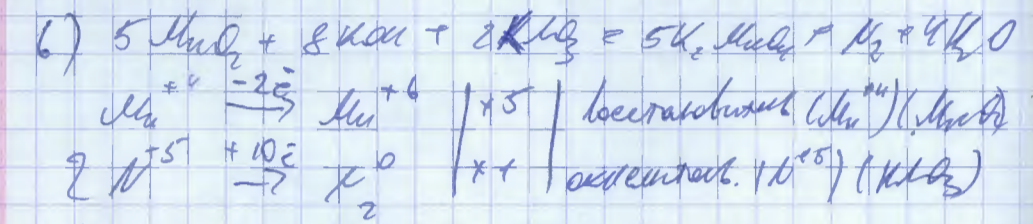 6) 5MnO₂ + 8KOH + 2KNO₃ = 5K₂MnO₄ + N₂ + 4H₂O
Mn⁺⁴ −2ē → Mn⁺⁶ | ×5 | восстановитель (Mn⁺⁴) (MnO₂)
2N⁺⁵ +10ē → N₂⁰ | ×1 | окислитель (N⁺⁵) (KNO₃)